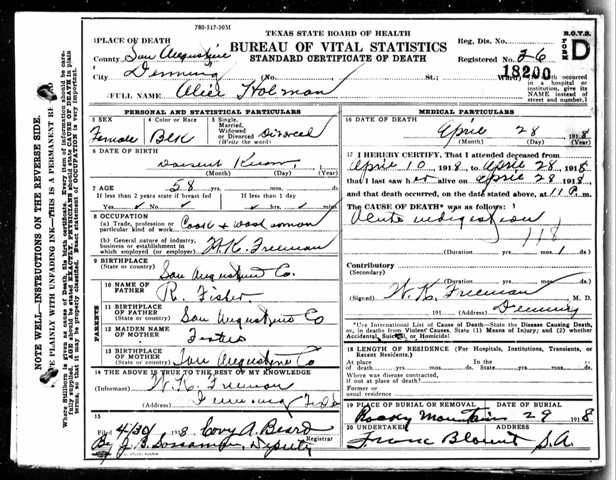 780-517-30M
TEXAS STATE BOARD OF HEALTH
BUREAU OF VITAL STATISTICS
STANDARD CERTIFICATE OF DEATH
Reg. Dis. No.
Registered No. 26
18200
B.O.V.S.
FORM D
PLACE OF DEATH
County San Augustine
City Denning
(No. St.; Ward)
death occurred in a hospital or institution, give its NAME instead of street and number.
FULL NAME Alice Holman
PERSONAL AND STATISTICAL PARTICULARS
3 SEX Female
4 Color or Race Blk
5 Single, Married, Widowed or Divorced (Write the word) Divorced
6 DATE OF BIRTH
Doesent Know
(Month) (Day) (Year)
7 AGE 58 yrs. mos. ds.
If less than 2 years state if breast fed
If less than 1 day
Yes No hrs. min.
8 OCCUPATION
(a) Trade, profession or particular kind of work Cook & wash woman
(b) General nature of industry, business or establishment in which employed (or employer) W.K. Freeman
9 BIRTHPLACE (State or country) San Augustine Co.
PARENTS
10 NAME OF FATHER R. Fisher
11 BIRTHPLACE OF FATHER (State or country) San Augustine Co
12 MAIDEN NAME OF MOTHER
13 BIRTHPLACE OF MOTHER San Augustine Co
14 THE ABOVE IS TRUE TO THE BEST OF MY KNOWLEDGE
(Informant) W. K. Freeman
(Address)
15
Filed 4/30 1918. Covy A. Beard
Registrar
By J. B. Sossamon, Deputy
MEDICAL PARTICULARS
16 DATE OF DEATH
April 28 1918
(Month) (Day) (Year)
17 I HEREBY CERTIFY, That I attended deceased from
April 10 1918 to April 28 1918
that I last saw her alive on April 28 1918
and that death occurred, on the date stated above, at 11 P m.
The CAUSE OF DEATH* was as follows:
Acute indigestion
118
(Duration yrs. mos. ds.
Contributory (Secondary)
(Duration) yrs. mos. ds.
(Signed) W. K. Freeman M. D.
191 (Address) Denning
*Use International List of Cause of Death—State the Disease Causing Death, or, in deaths from Violent Causes, State (1) Means of Injury; and (2) whether Accidental, Suicidal, or Homicidal.
18 LENGTH OF RESIDENCE (For Hospitals, Institutions, Transients, or Recent Residents.)
At place of death yrs. mos. ds. In the State yrs. mos. ds.
Where was disease contracted, if not at place of death?
Former or usual residence
19 PLACE OF BURIAL OR REMOVAL DATE OF BURIAL
Rocky Mountain 29 1918
20 UNDERTAKER ADDRESS
Frank Blount S.A.
NOTE WELL—INSTRUCTIONS ON THE REVERSE SIDE.
PLAINLY WITH UNFADING INK—THIS IS A PERMANENT